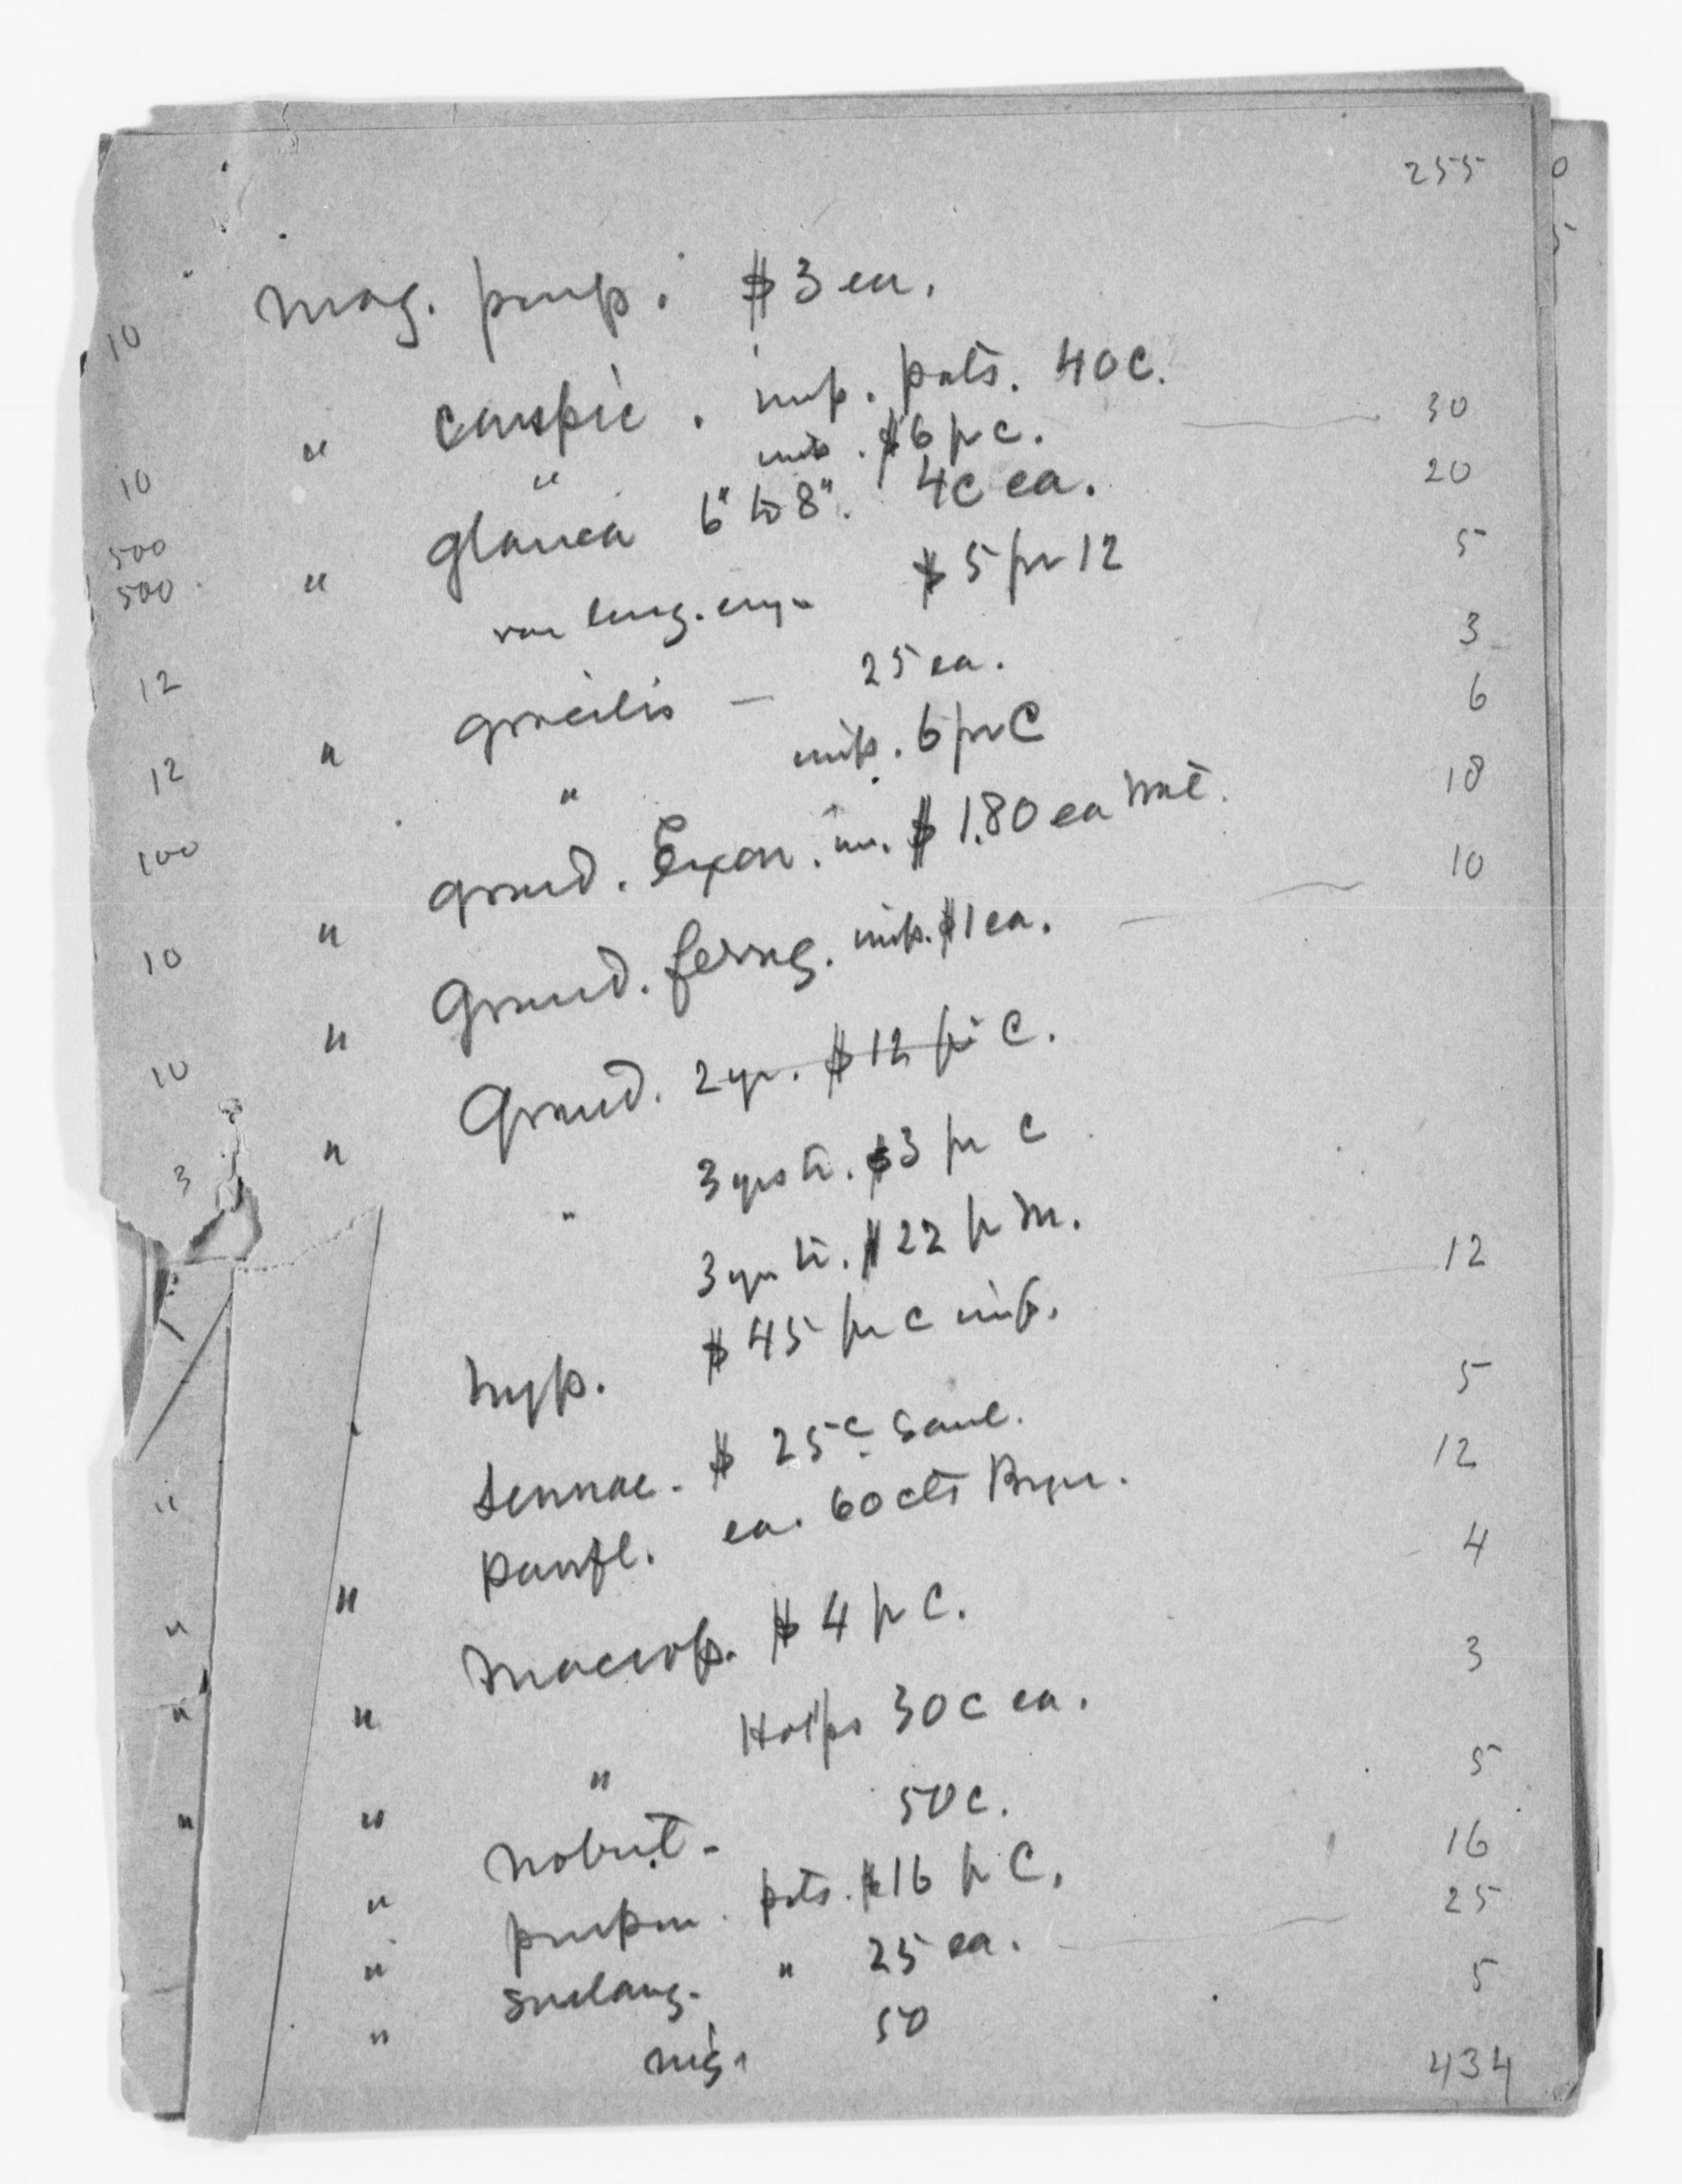 255
10 Mag. purp. $3 ea.
10 " conspic. imp. pots. 40c.
500 " imp. $6 pr c. 30
500 " glauca 6" to 8". 4c ea. 20
12 var long. $5 pr 12 5
12 " gracilis — 25 ea. 3
100 " imp. 6 pr C 6
10 " grand. Exon. im. $1.80 ea 18
10 " Grand. ferrug. imp. $1 ea. 10
3 " Grand. 2 yr. $12 pr C.
" 3 yrs tr. $3 pr C
3 yr tr. $22 pr M.
hyp. $45 pr c imp. 12
Lennae. $ 25c Saul. 5
" " parvfl. ea. 60 cts 12
" " Macrop. $4 pr C. 4
" " " 30c ea. 3
" " 50c. 5
" purpur. pots. $16 pr C. 16
" Soulang. " 25 ea. 25
" nig. 50 5
434